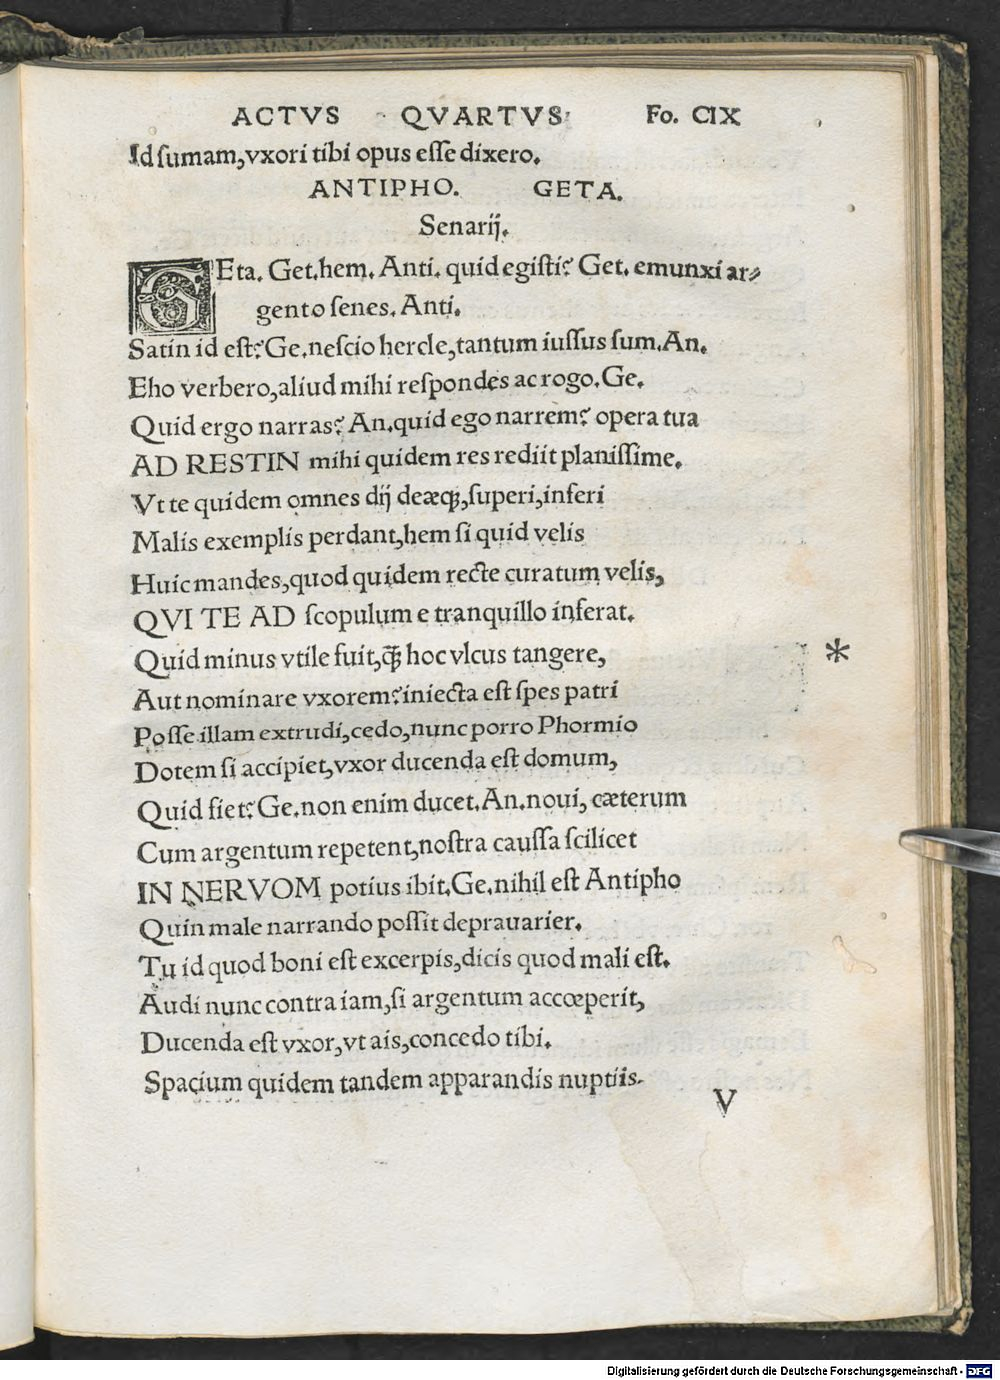 ACTVS QVARTVS Fo. CIX
Id sumam,vxori tibi opus esse dixero.
ANTIPHO. GETA.
Senarij.
GEta. Get.hem. Anti. quid egisti? Get. emunxi ar-
gento senes. Anti.
Satin id est? Ge.nescio hercle,tantum iussus sum.An.
Eho verbero,aliud mihi respondes ac rogo.Ge.
Quid ergo narras? An.quid ego narrem? opera tua
AD RESTIN mihi quidem res rediit planissime.
Vt te quidem omnes dij deæq;,superi,inferi
Malis exemplis perdant,hem si quid velis
Huic mandes,quod quidem recte curatum velis,
QVI TE AD scopulum e tranquillo inferat.
Quid minus vtile fuit,q̃ hoc vlcus tangere,
Aut nominare vxorem?iniecta est spes patri
Posse illam extrudi,cedo,nunc porro Phormio
Dotem si accipiet,vxor ducenda est domum,
Quid fiet? Ge.non enim ducet.An.noui, cæterum
Cum argentum repetent,nostra caussa scilicet
IN NERVOM potius ibit.Ge.nihil est Antipho
Quin male narrando possit deprauarier.
Tu id quod boni est excerpis,dicis quod mali est.
Audi nunc contra iam,si argentum accœperit,
Ducenda est vxor,vt ais,concedo tibi.
Spacium quidem tandem apparandis nuptiis.
V
*
Digitalisierung gefördert durch die Deutsche Forschungsgemeinschaft - DFG